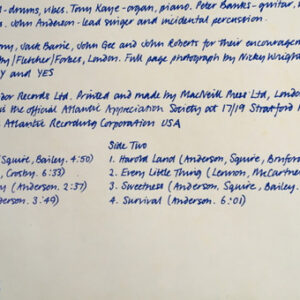 - drums, vibes. Tony Kaye - organ, piano. Peter Banks - guitar,
. John Anderson - lead singer and incidental percussion.
ony, Jack Barrie, John Gee and John Roberts for their encouragem
by/Fletcher/Forbes, London. Full page photograph by Nicky Wright
Y and YES
dor Records Ltd. Printed and made by MacNeill Press Ltd, London
is the official Atlantic Appreciation Society at 17/19 Stratford
Atlantic Recording Corporation USA
Side Two
Squire, Bailey. 4:50)
1. Harold Land (Anderson, Squire, Bruford
, Crosby. 6:33)
2. Every Little Thing (Lennon, McCartne
y (Anderson. 2:37)
3. Sweetness (Anderson. Squire, Bailey.
derson. 3:49)
4. Survival (Anderson. 6:01)